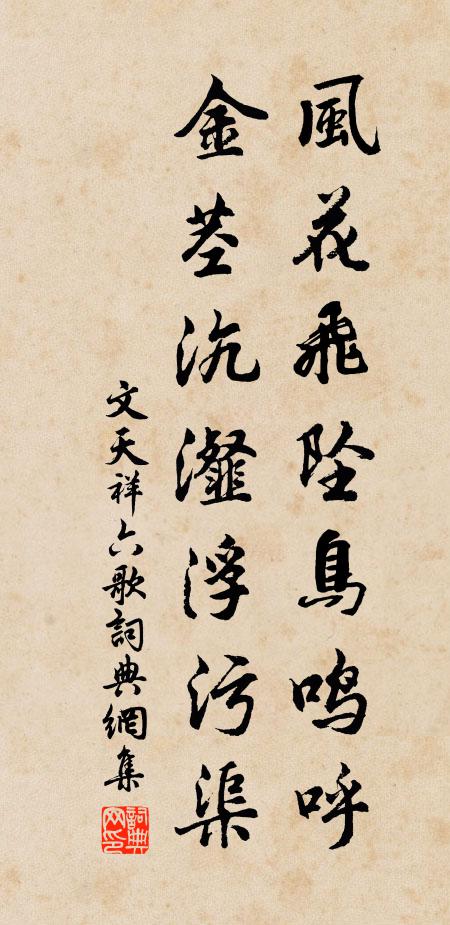 風花飛墜鳥鳴呼
金莖沆瀣浮污渠
文天祥六歌詞典網集
詞典網印